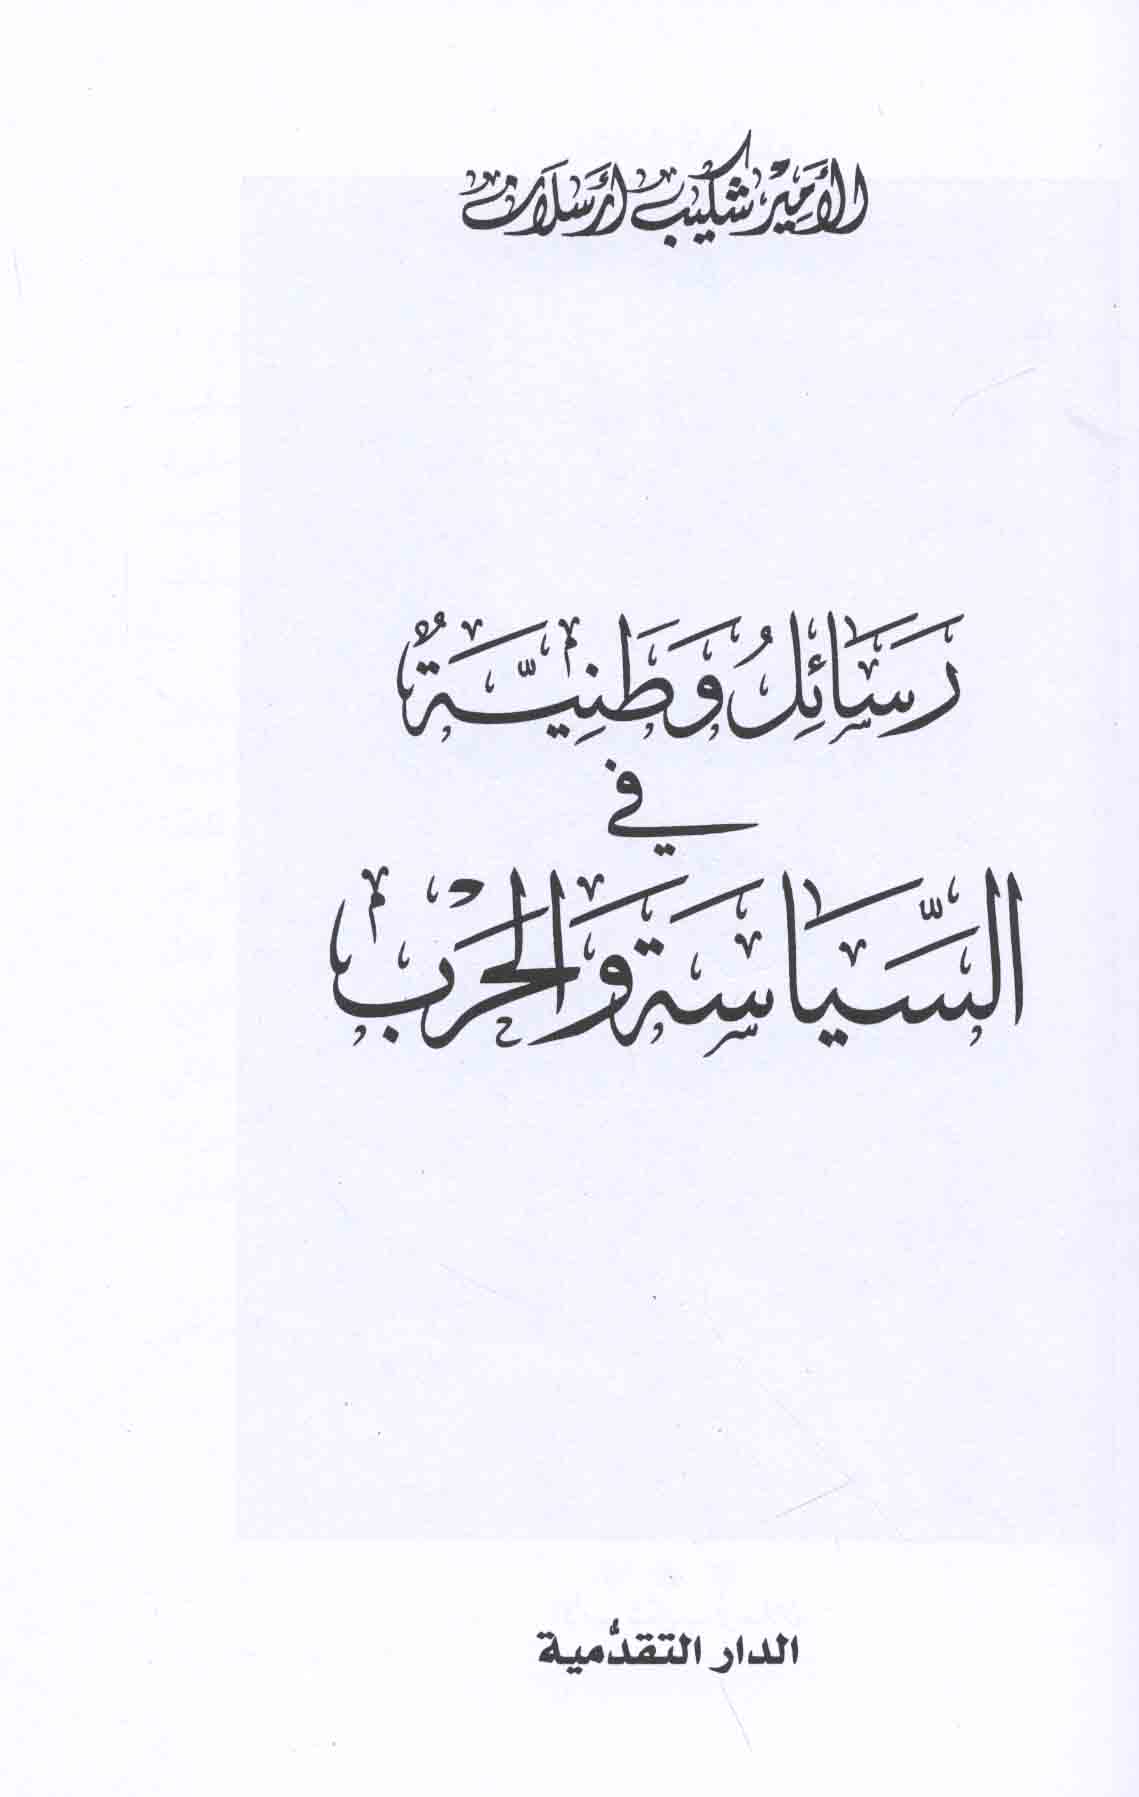 الأمير شكيب أرسلان
رَسَائِلُ وَطَنِيَّةٌ
في
السِّيَاسَةِ وَالحَرْبِ
الدار التقدُّمية